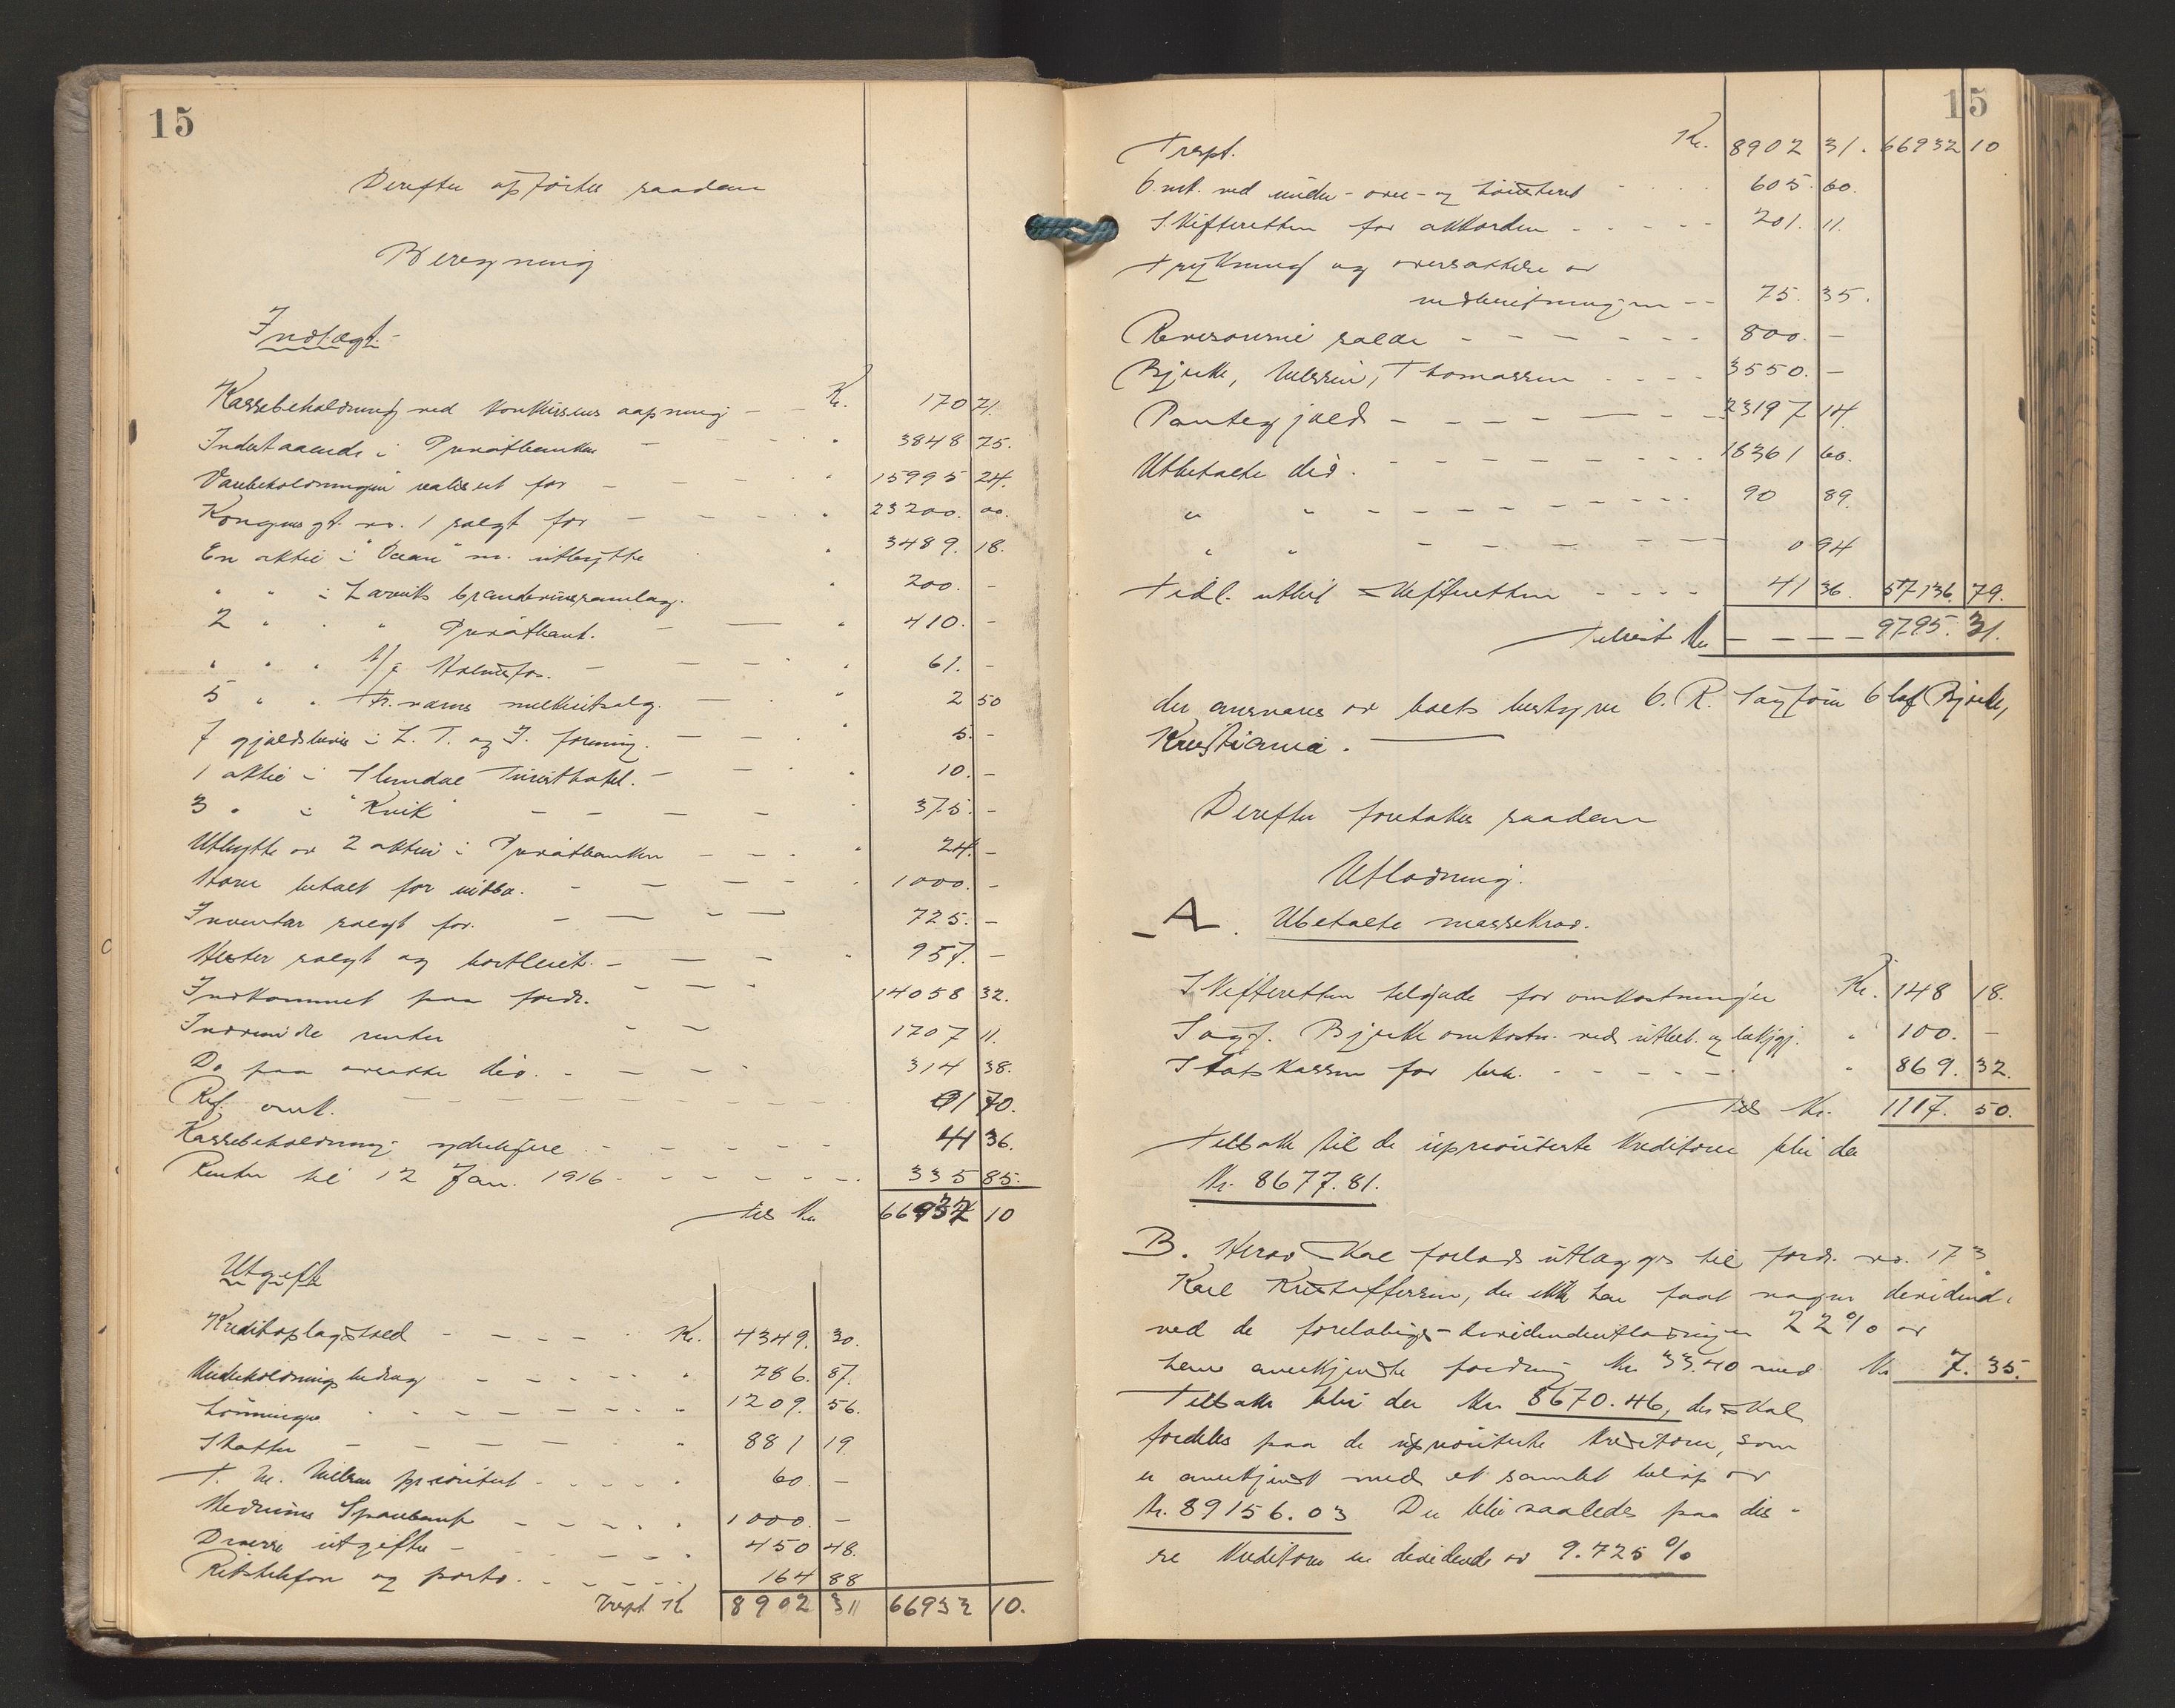 15
Derefter opførtes saadan
Beregning
Indtægt.
Kassebeholdning ved konkursens aapning - - Kr. 170 71.
Indestaaende i Privatbanken - - - " 3848 75.
Varebeholdningen realisert for - - - " 15995 24.
Kongensgt. no. 1 solgt for - - - - " 23200. 00.
En aktie i "Ocean" m. utbytte " 3489. 18.
" " i Larviks branderiinteressentskap " 200. -
2 " " " Privatbank. - - " 410. -
" " " A/S Holmsfos. - - - - " 61. -
5 " " melkeutsalg. - - - " 2 50
7 gjeldsbrev i L. T. og I. forening. - - - " 5. -
1 aktie i Slemdal Turisthotel. - - - " 10. -
3 " i "Kvik" - - - - " 375. -
Utbytte av 2 aktier i Privatbanken - - - " 24. -
betalt for indbo. - - - - " 1000. -
Inventar solgt for. - - - - 725. -
Hester solgt og bortleiet. - - - - " 957. -
Indkommet paa fordr. - - - 14058 32.
Indvundne renter - - 1707 11.
Do paa avsatte div. - - - - 314 38.
Ref. omk. - - - - - - - 91 70.
Kassebeholdning yderligere - - - - - 41 36.
Renter til 12 Jan. 1916 - - - - - - 335 85.
tils Kr 66932 10
Utgift
Kreditoplagstold - - - - Kr. 4349. 30.
Underholdningsbidrag - - - - - " 786. 87.
Lønninger - - - - - - - " 1209. 56.
Skatter - - - - - " 881 19.
T. M. Nielsen prioritet - - - - " 60. -
Hedrums Sparebank - - - - " 1000. -
Diverse utgifter - - - - " 450 48.
Rikstelefon og porto. - - - - - 164 88
Trspt Kr 8902 31 66932 10.
15
Trspt. Kr. 8902 31. 66932 10
Omk. ved under- over- og høiesteret - - - 605. 60.
Skifteretten for akkorden - - - - - 201. 11.
Trykning og oversættelse av
indberetningen - - 75. 35.
Revisorernes salær - - - - - - 800. -
Bjerke, Nilssen, Thomassen - - - - 3550. -
Pantegjæld - - - - - - - 23197 14.
Utbetalte div. - - - - - - - - 18361 60.
" " - - - - - - - 90 89.
" " - - - - - - 0 94
Tidl. utbet. Skifteretten - - - - 41 36. 57136. 79.
Tilrest Kr - - - - 9795. 31.
der ansvares av boets bestyrer O. R. Sagfører Olaf Bjerke,
Kristiania.
Derefter foretokes saadan
Utlodning.
A. Ubetalte massekrav.
Skifteretten tilgode for omkostninger Kr. 148 18.
Sagf. Bjerke omkostn. ved utbet. og bekjgj. " 100. -
Statskassen for beh. - - - - - - " 869. 32.
Tils Kr. 1117. 50.
Tilbake til de uprioriterte kreditorer blir da
Kr. 8677.81.
B. Herav skal forlods utlægges til fordr. no. 173
Karl Kristoffersen, der ikke har faat nogen dividende
ved de foreløbige dividendeutlodninger 22% av
hans anerkjendte fordring Kr 33.40 med Kr 7. 35.
Tilbake blir der Kr 8670.46, der skal
fordeles paa de uprioriterte kreditorer, som
er anerkjendt med et samlet beløp av
Kr. 89156.03 Der blir saaledes paa dis-
se kreditorer en dividende av 9.725 %